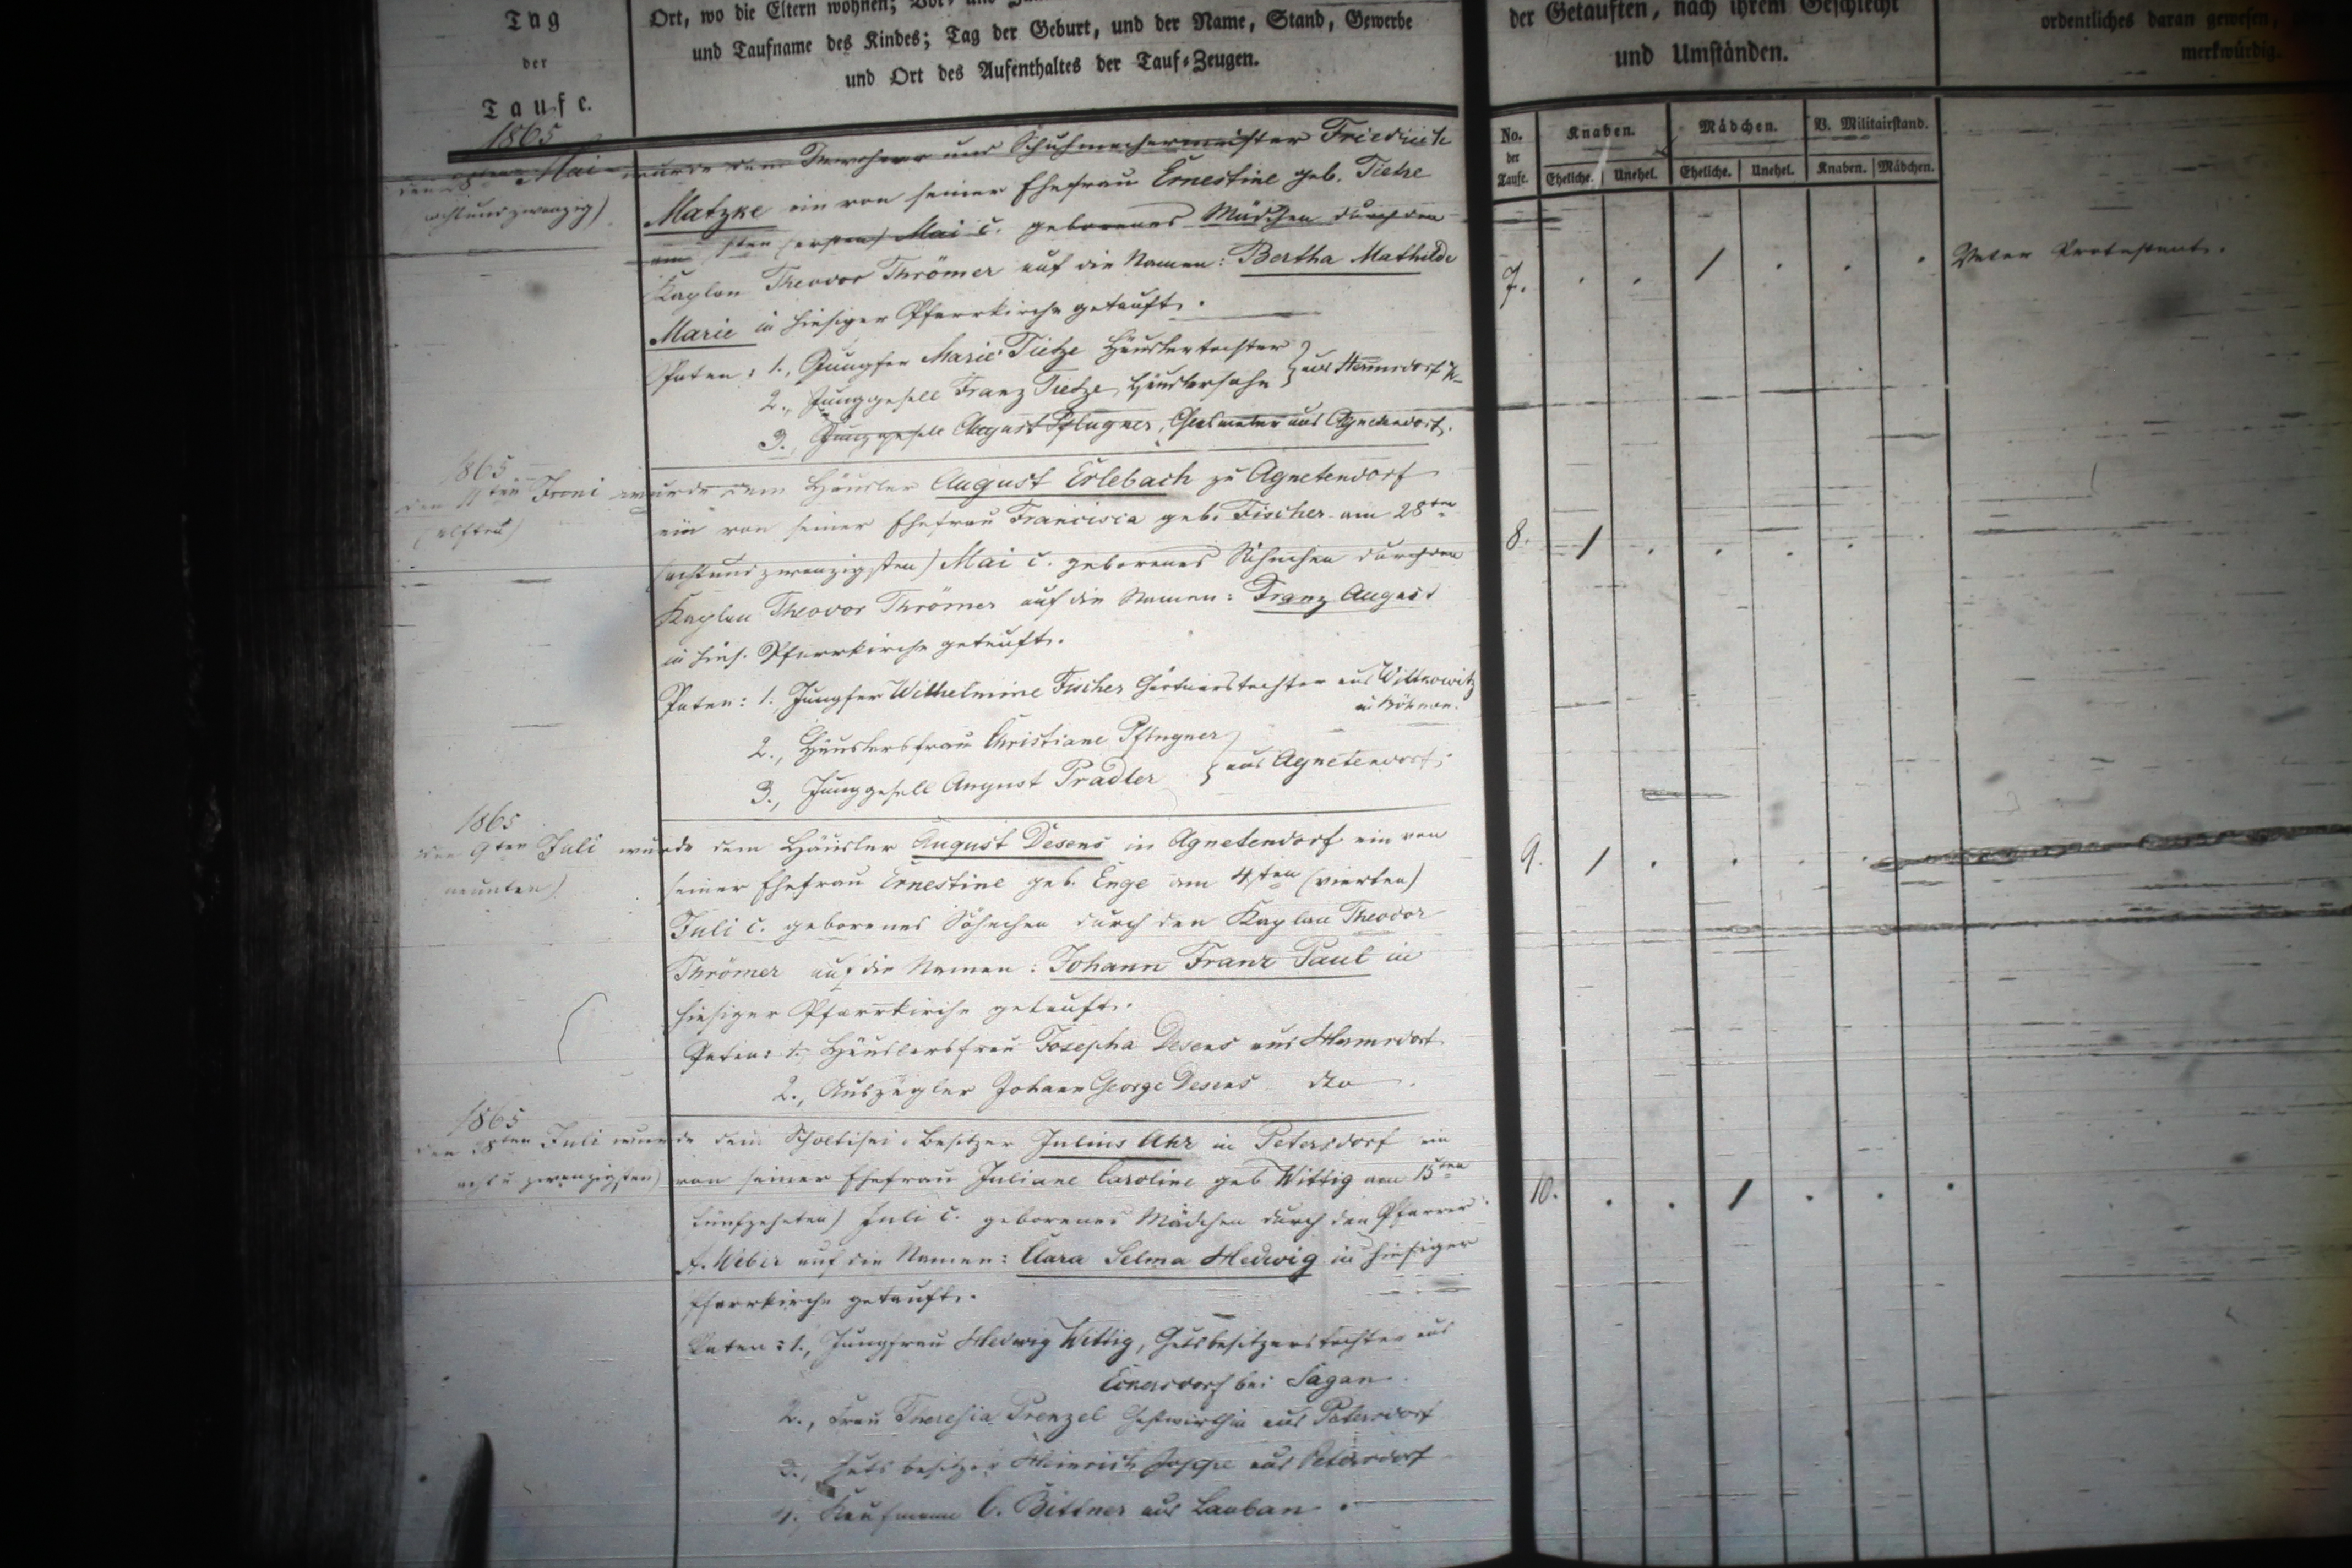 Tag
der
Taufe.
Ort, wo die Eltern wohnen;
und Taufname des Kindes; Tag der Geburt, und der Name, Stand, Gewerbe
und Ort des Aufenthaltes der Tauf-Zeugen.
der Getauften, nach ihrem Geschlecht
und Umständen.
ordentliches daran gewesen,
merkwürdig.
No. der Taufe.
Knaben.
Mädchen.
V. Militairstand.
Eheliche. Unehel. Eheliche. Unehel. Knaben. Mädchen.
1865
den 28ten Mai wurde dem Inwohner und Schuhmachermeister Friedrich
achtundzwanzig)
Matzke ein von seiner Ehefrau Ernestine geb. Tietze
am 1sten (ersten) Mai c. geborenes Mädchen durch den
Kaplan Theodor Thrömer auf die Namen: Bertha Mathilde
7. . . / . . . Vater Protestant.
Marie in hiesiger Pfarrkirche getauft.
Paten: 1., Jungfer Marie Tietze Häuslertochter
2., Junggesell Franz Tietze, Häuslersohn } aus Hermsdorf
3., Junggesell August Pflugner, Glasmaler aus Agnetendorf.
1865
den 11ten Juni wurde dem Häusler August Erlebach zu Agnetendorf
(elften)
ein von seiner Ehefrau Francisca geb. Fischer am 28ten
8. / . . . .
(achtundzwanzigsten) Mai c. geborenes Söhnchen durch den
Kaplan Theodor Thrömer auf die Namen: Franz August
in hies. Pfarrkirche getauft.
Paten: 1. Jungfer Wilhelmine Fischer Gärtnerstochter aus Wittkowitz
in Böhmen.
2., Häuslersfrau Christiane Pflugner
3., Junggesell August Pradler } aus Agnetendorf.
1865
den 9ten Juli wurde dem Häusler August Desens in Agnetendorf ein von
neunten)
9. / . . . .
seiner Ehefrau Ernestine geb. Enge am 4ten (vierten)
Juli c. geborenes Söhnchen durch den Kaplan Theodor
Thrömer auf die Namen: Johann Franz Paul in
hiesiger Pfarrkirche getauft.
Paten: 1., Häuslersfrau Josepha Desens aus Hermsdorf
2., Auszügler Johann George Desens dto.
1865
den 28ten Juli wurde dem Scholtisei-Besitzer Julius Ahr in Petersdorf ein
acht u. zwanzigsten)
von seiner Ehefrau Juliane Caroline geb Wittig am 15ten
10. . . / . . .
fünfzehnten) Juli c. geborenes Mädchen durch den Pfarrer
A. Weber auf die Namen: Clara Selma Hedwig in hiesiger
Pfarrkirche getauft.
Paten: 1., Jungfrau Hedwig Wittig, Gutsbesitzerstochter aus
Eckersdorf bei Sagan.
2., Frau Theresia Prenzel Gastwirthin aus Petersdorf
3., Gutsbesitzer Heinrich aus Petersdorf
4. Kaufmann C. Bittner aus Lauban.